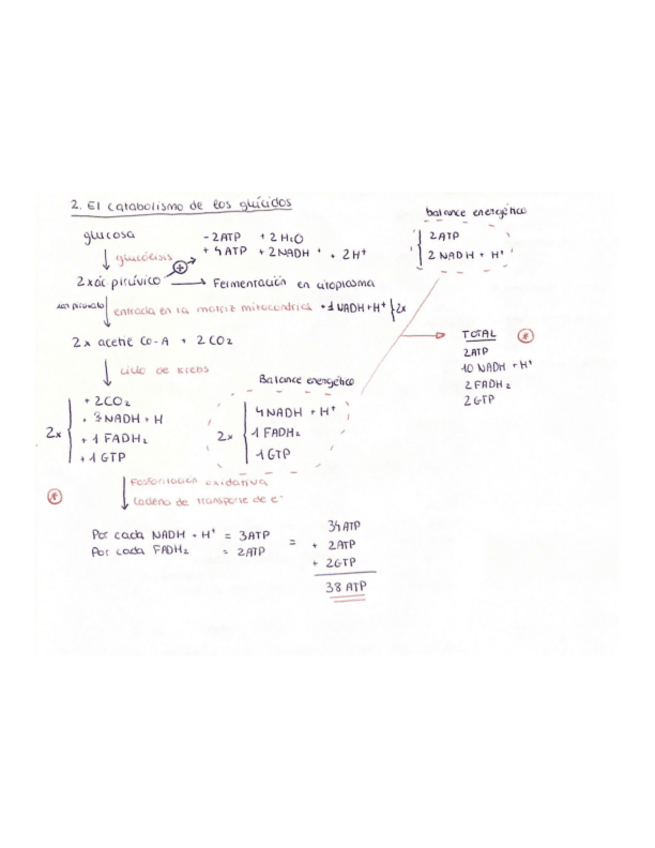 2. El catabolismo de los glúcidos
balance energético
glucosa
- 2ATP + 2H₂O
+ 4ATP + 2NADH + 2H⁺
2ATP
2 NADH + H⁺
glucólisis
2 x ác. pirúvico → Fermentación en citoplasma
entrada en la matriz mitocondrial + 1 NADH + H⁺ } 2x
2 x acetil Co-A + 2 CO₂
TOTAL
2ATP
10 NADH + H⁺
2 FADH₂
2 GTP
ciclo de Krebs
Balance energético
2x
+ 2CO₂
+ 3 NADH + H
+ 1 FADH₂
+ 1 GTP
2x
4 NADH + H⁺
1 FADH₂
1 GTP
Fosforilación oxidativa
Cadena de transporte de e⁻
Por cada NADH + H⁺ = 3ATP
Por cada FADH₂ = 2ATP
=
34 ATP
+ 2ATP
+ 2GTP
38 ATP